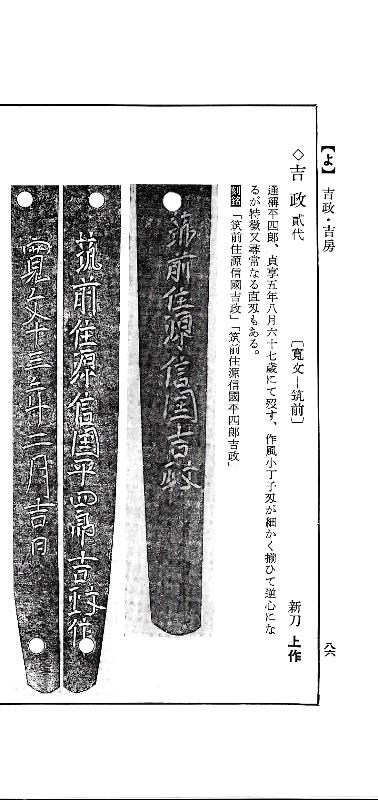 【よ】 吉政・吉房
八六
◇吉政 貳代 〔寛文―筑前〕 新刀 上作
通稱平四郎、貞享五年八月六十七歳にて歿す、作風小丁子刄が細かく揃ひて逆心にな
るが特徴又尋常なる直刄もある。
刻銘「筑前住源信國吉政」「筑前住源信國平四郎吉政」
筑前住源信國吉政
筑前住源信國平四郎吉政作
寛文十三年二月吉日